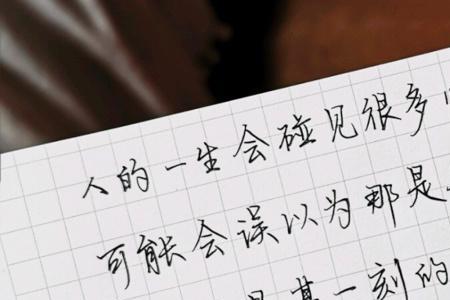 人的一生会碰见很多
可能会误以为那是
是某一刻的